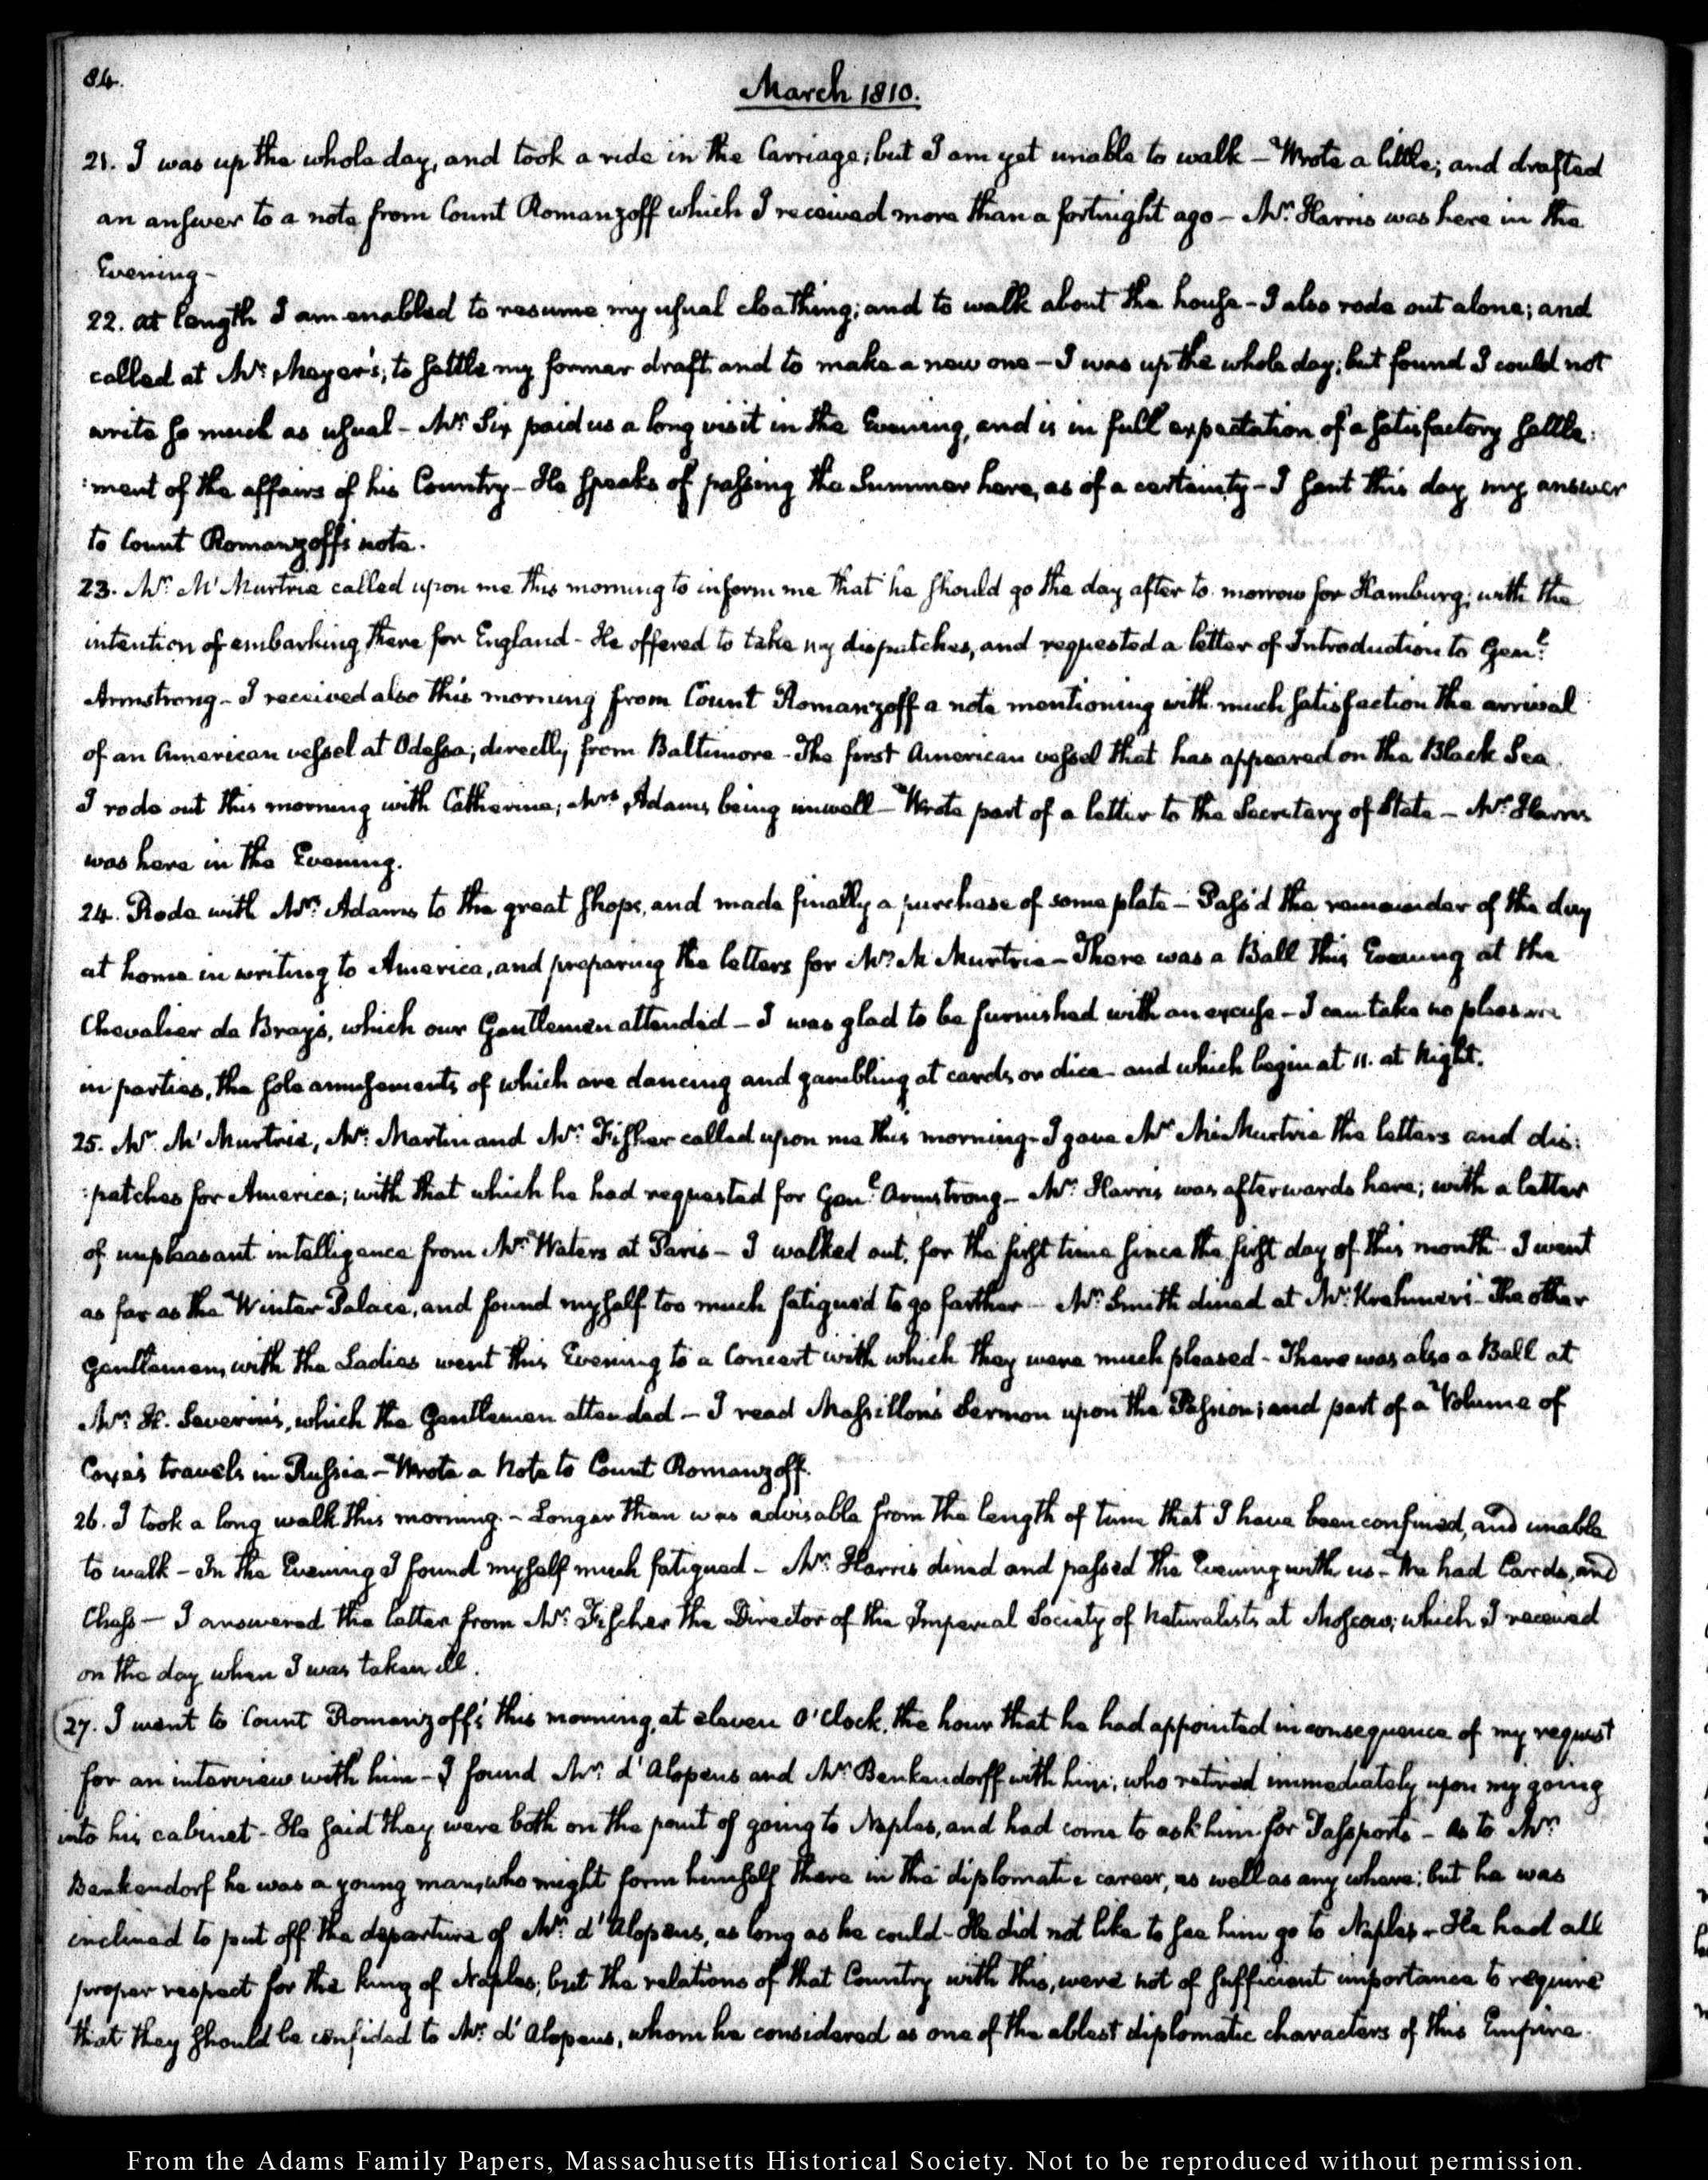 84.
March 1810.
21. I was up the whole day, and took a ride in the Carriage; but I am yet unable to walk — Wrote a little; and drafted
an answer to a note from Count Romanzoff which I received more than a fortnight ago — Mr. Harris was here in the
Evening —
22. At length I am enabled to resume my usual cloathing; and to walk about the house — I also rode out alone; and
called at Mr. Meyer's, to settle my former draft and to make a new one — I was up the whole day; but found I could not
write so much as usual — Mr. Six paid us a long visit in the Evening, and is in full expectation of a satisfactory settle:
:ment of the affairs of his Country — He speaks of passing the Summer here, as of a certainty — I sent this day my answer
to Count Romanzoff's note.
23. Mr. M'Murtrie called upon me this morning to inform me that he should go the day after to morrow for Hamburg; with the
intention of embarking there for England — He offered to take my dispatches, and requested a letter of Introduction to Genl.
Armstrong — I received also this morning from Count Romanzoff a note mentioning with much satisfaction the arrival
of an American vessel at Odessa, directly from Baltimore — The first American vessel that has appeared on the Black Sea.
I rode out this morning with Catherine; Mrs. Adams being unwell — Wrote part of a letter to the Secretary of State — Mr. Harris
was here in the Evening.
24. Rode with Mrs. Adams to the great shops, and made finally a purchase of some plate — Pass'd the remainder of the day
at home in writing to America, and preparing the letters for Mr. M Murtrie — There was a Ball this Evening at the
Chevalier de Bray's, which our Gentlemen attended — I was glad to be furnished with an excuse — I can take no pleasure
in parties, the sole amusements of which are dancing and gambling at cards or dice — and which begin at 11. at Night.
25. Mr. M'Murtrie, Mr. Martin and Mr. Fisher called upon me this morning — I gave Mr. McMurtrie the letters and dis:
:patches for America; with that which he had requested for Genl. Armstrong — Mr. Harris was afterwards here; with a letter
of unpleasant intelligence from Mr. Waters at Paris — I walked out, for the first time since the first day of this month — I went
as far as the Winter Palace, and found myself too much fatigued to go farther — Mr. Smith dined at Mr. Krehmer's — The other
Gentlemen, with the Ladies went this Evening to a Concert with which they were much pleased — There was also a Ball at
Mr. H. Severin's, which the Gentlemen attended — I read Massillon's Sermon upon the Passion; and part of a Volume of
Coxe's travels in Russia — Wrote a Note to Count Romanzoff.
26. I took a long walk this morning — Longer than was advisable from the length of time that I have been confined, and unable
to walk — In the Evening I found myself much fatigued — Mr. Harris dined and passed the Evening with us — We had Cards, and
Chess — I answered the letter from Mr. Fischer the Director of the Imperial Society of Naturalists at Moscow; which I received
on the day when I was taken ill.
27. I went to Count Romanzoff's this morning, at eleven O'Clock, the hour that he had appointed in consequence of my request
for an interview with him — I found Mr. d'Alopeus and Mr. Benkendorff with him, who retired immediately upon my going
into his cabinet — He said they were both on the point of going to Naples, and had come to ask him for Passports — As to Mr.
Benkendorf he was a young man, who might form himself there in the diplomatic career, as well as any where; but he was
inclined to put off the departure of Mr. d'Alopeus, as long as he could — He did not like to see him go to Naples — He had all
proper respect for the king of Naples; but the relations of that Country with this, were not of sufficient importance to require
that they should be confided to Mr. d'Alopeus, whom he considered as one of the ablest diplomatic characters of this Empire.
From the Adams Family Papers, Massachusetts Historical Society. Not to be reproduced without permission.